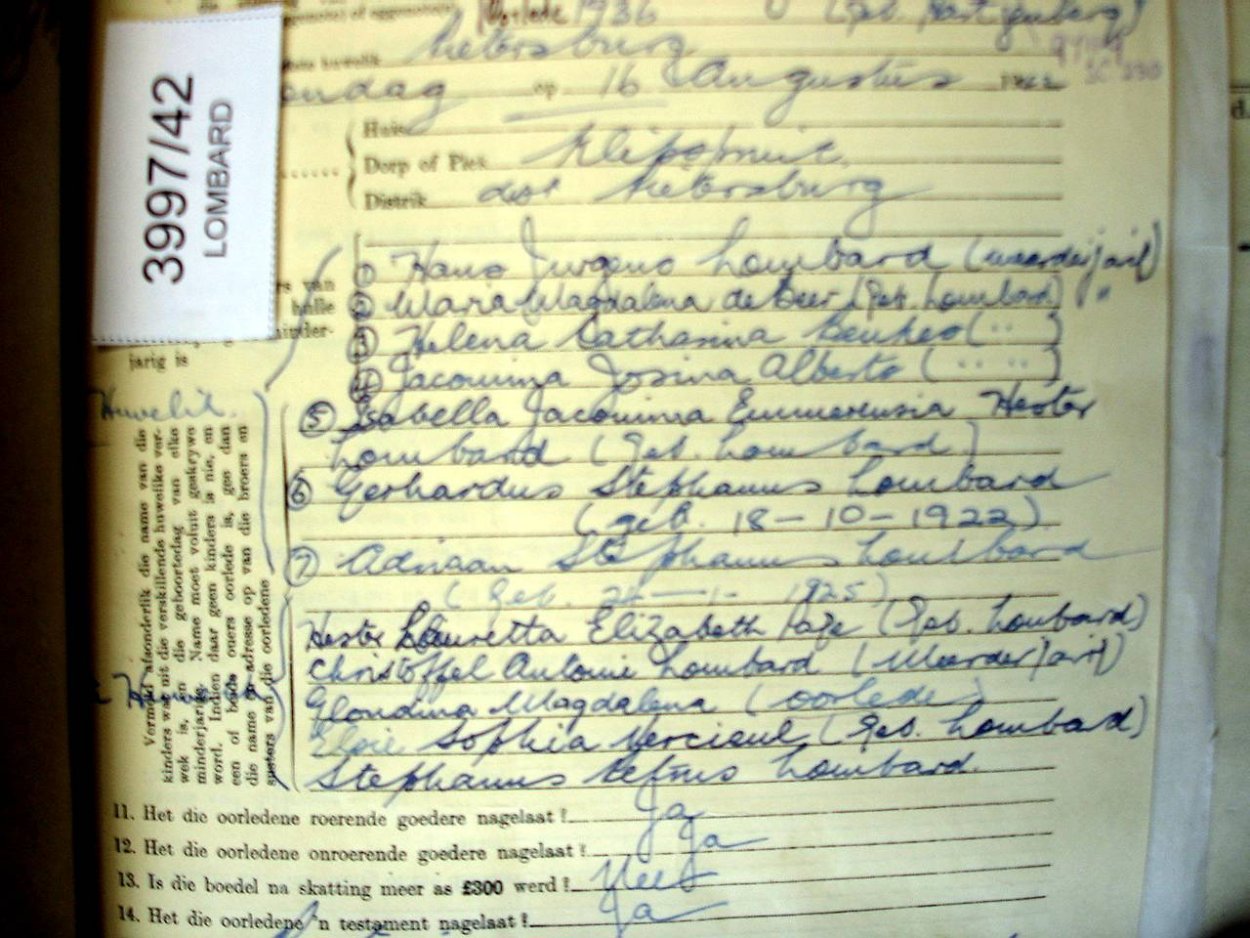 3997/42
LOMBARD
Oorlede 1936
Pietersburg
op 16 Augustus 1942
Huis
Dorp of Plek
Distrik dist Pietersburg
① Hans Jurgens Lombard (meerderjarig)
② Maria Magdalena de Beer (Geb. Lombard) "
③ Helena Catharina Beukes ( " )
④ Jacomina Josina Alberts ( " " )
⑤ Isabella Jacomina Emmerensia Hester
Lombard (Geb. Lombard)
⑥ Gerhardus Stephanus Lombard
(geb. 18-10-1922)
⑦ Adriaan Stephanus Lombard
(Geb. 1925)
Hester Louretta Elizabeth (Geb. Lombard)
Christoffel Antonie Lombard (Meerderjarig)
Magdalena (oorlede)
Elsie Sophia (Geb. Lombard)
Stephanus Lombard.
jarig is
Huwelik.
Vermeld afsonderlik die name van die
kinders wat uit die verskillende huwelike ver-
wek is, en die geboortedag van elke
minderjarig. Name moet voluit geskrywe
word. Indien daar geen kinders is nie, en
een of beide ouers oorlede is, gee dan
die name en adresse op van die broers en
susters van die oorledene
11. Het die oorledene roerende goedere nagelaat? Ja
12. Het die oorledene onroerende goedere nagelaat? Ja
13. Is die boedel na skatting meer as £300 werd? Nee
14. Het die oorledene 'n testament nagelaat? Ja